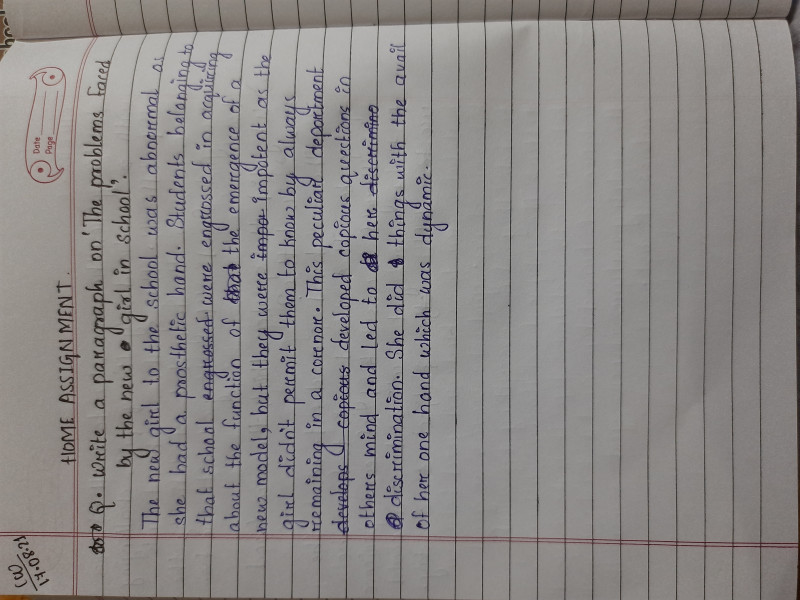 CW
17.08.21
Date
Page
HOME ASSIGNMENT.
Q. Write a paragraph on 'The problems faced
by the new girl in school'.
The new girl to the school was abnormal as
she had a prosthetic hand. Students belonging to
that school engrossed were engrossed in acquiring
about the function of that the emergence of a
new model, but they were impo impotent as the
girl didn't permit them to know by always
remaining in a cornor. This peculiar department
develops copious developed copious questions in
others mind and led to her discrimino
discrimination. She did things with the avail
of her one hand which was dynamic.